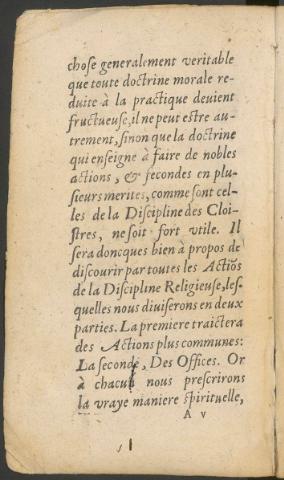 choſe generalement veritable
que toute doctrine morale re-
duite à la practique deuient
fructueuſe, il ne peut eſtre au-
trement, ſinon que la doctrine
qui enſeigne à faire de nobles
actions, & fecondes en plu-
ſieurs merites, comme ſont cel-
les de la Diſcipline des Cloi-
ſtres, ne ſoit fort vtile. Il
ſera doncques bien à propos de
diſcourir par toutes les Actiõs
de la Diſcipline Religieuſe, leſ-
quelles nous diuiſerons en deux
parties. La premiere traictera
des Actions plus communes:
La ſeconde, Des Offices. Or
à chacun nous preſcrirons
la vraye maniere ſpirituelle,
A v